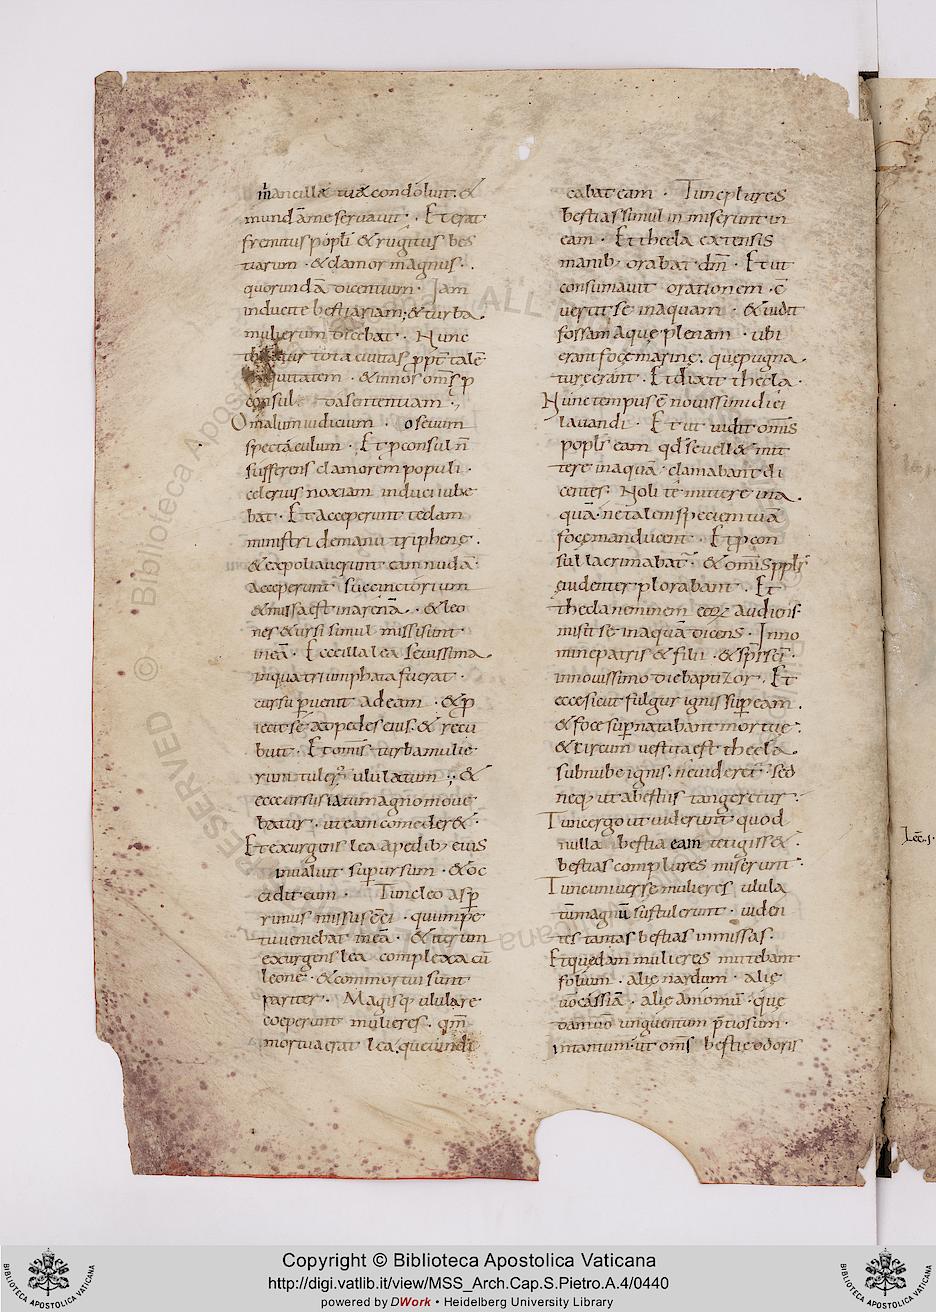 mancillæ tuæ condoluit · &
mundāme servauit · Et erat
fremitus popłi & rugitus bes
tiarum · & clamor magnus ·
quorundā dicentium · Iam
inducite bestiariam; & turba
mulierum dicebat · Hunc
tota ciuitas ꝓpt tale
quitatem · & innos omīs ꝓ
consul da sententiam ·
O malum iudicium · o seuum
spectaculum · Et ꝓconsul n̄
sufferens clamorem populi ·
celerius noxiam induci iube
bat · Et acceperunt teclam
ministri demanu triphenę ·
& expoliauerunt eam nudā
acceperunt succinctorium
& missa est in arenā · & leo
nes & ursi simul missi sunt
in eā · Et ecce illa lea seuissima
inqua triumphata fuerat ·
cursu ꝑuenit ad eam · & ꝓ
iecit se ad pedes eius · & recu
buit · Et omīs turba mulie
rum tuler ululatum ; &
ecce ursus iatu magno moue
batur · ut eam comeder& ·
Et exurgens lea apedib; eius
inualuit suꝑ ursum · & oc
cidit eum · Tunc leo asp
rimus missus ē ei · qui impe
tu ueniebat in eā · & iterum
exurgens lea complexa cū
leone · & commortui sunt
pariter · Magisq; ululare
coeperunt mulieres · qm̄
mortua erat lea que uindi
cabat eam · Tunc plures
bestias simul in miserunt in
eam · Et thecla extensis
manib; orabat dm̄ · Et ut
consumauit orationem · c̄
uertit se in aquam · & uidit
fossam aque plenam · ubi
erant focę marinę · que pugna
turę erant · Et dixit thecla ·
Nunc tempus ē nouissimi diei
lauandi · Et ut uidit omīs
popłs eam qd se uell& mit
tere in aquā · clamabant di
centes · Noli te mittere in a
quā · ne talem speciem tuā
focę manducent · Et ꝓcon
sul lacrimabat · & omīs ppłs
euidenter plorabant · Et
thecla neminem eoꝝ audiens
misit se in aquā dicens · In no
mine patris & filii · & sp̄s sc̄i ·
in nouissimo die baptizor · Et
ecce sicut fulgur ignis suꝑ eam
& foce suꝑnatabant mortue ·
& circum uestita est thecla
sub nube ignis · ne uideret · sed
neq; ut abestiis tangeretur ·
Tunc ergo ut uiderunt quod
nulla bestia eam tetigiss& ·
bestias complures miserunt ·
Tunc uniuerse mulieres ulula
tū magnū sustulerunt · uiden
tes tantas bestias inmissas ·
Et quedam mulieres mittebant
folium · alie nardum · alie
uo cassiā · alie amomū · que
dam uo unguentum p̄tiosum ·
intantum · ut omīs bestie odoris
Lec̄ · 1 ·
Copyright © Biblioteca Apostolica Vaticana
http://digi.vatlib.it/view/MSS_Arch.Cap.S.Pietro.A.4/0440
powered by DWork • Heidelberg University Library